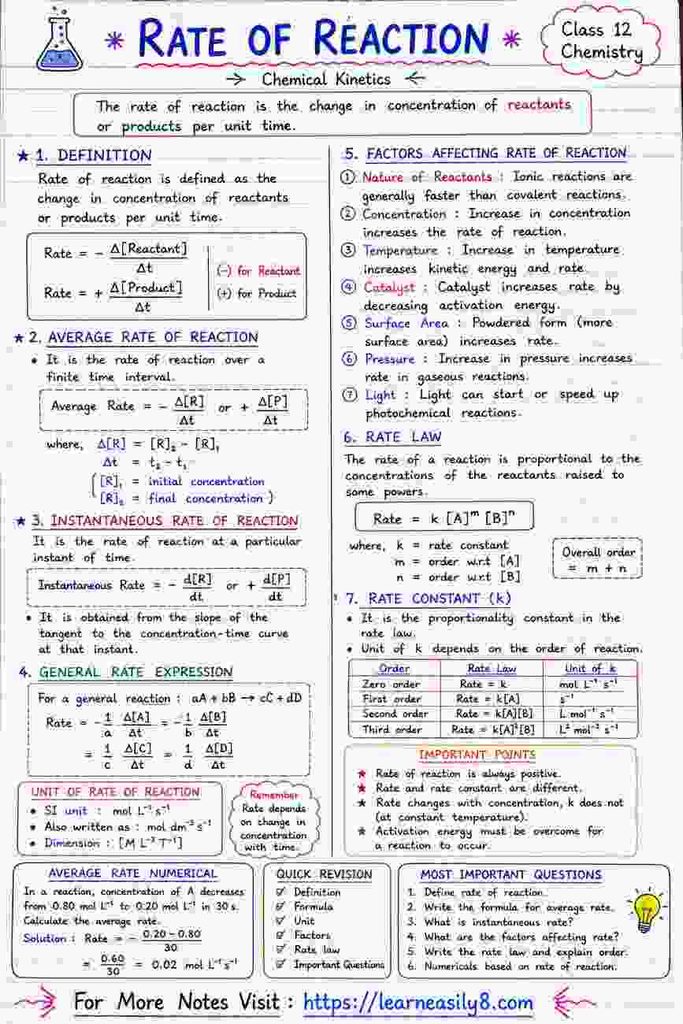 * RATE OF REACTION *
Class 12
Chemistry
→ Chemical Kinetics ←
The rate of reaction is the change in concentration of reactants
or products per unit time.
★ 1. DEFINITION
Rate of reaction is defined as the
change in concentration of reactants
or products per unit time.
Rate = - Δ[Reactant] / Δt
Rate = + Δ[Product] / Δt
(-) for Reactant
(+) for Product
★ 2. AVERAGE RATE OF REACTION
• It is the rate of reaction over a
finite time interval.
Average Rate = - Δ[R] / Δt or + Δ[P] / Δt
where, Δ[R] = [R]₂ - [R]₁
Δt = t₂ - t₁
( [R]₁ = initial concentration
[R]₂ = final concentration )
★ 3. INSTANTANEOUS RATE OF REACTION
It is the rate of reaction at a particular
instant of time.
Instantaneous Rate = - d[R] / dt or + d[P] / dt
• It is obtained from the slope of the
tangent to the concentration-time curve
at that instant.
4. GENERAL RATE EXPRESSION
For a general reaction : aA + bB → cC + dD
Rate = - 1/a Δ[A]/Δt = - 1/b Δ[B]/Δt
= 1/c Δ[C]/Δt = 1/d Δ[D]/Δt
UNIT OF RATE OF REACTION
• SI unit : mol L⁻¹ s⁻¹
• Also written as : mol dm⁻³ s⁻¹
• Dimension : [M L⁻³ T⁻¹]
Remember
Rate depends
on change in
concentration
with time.
5. FACTORS AFFECTING RATE OF REACTION
① Nature of Reactants : Ionic reactions are
generally faster than covalent reactions.
② Concentration : Increase in concentration
increases the rate of reaction.
③ Temperature : Increase in temperature
increases kinetic energy and rate.
④ Catalyst : Catalyst increases rate by
decreasing activation energy.
⑤ Surface Area : Powdered form (more
surface area) increases rate.
⑥ Pressure : Increase in pressure increases
rate in gaseous reactions.
⑦ Light : Light can start or speed up
photochemical reactions.
6. RATE LAW
The rate of a reaction is proportional to the
concentrations of the reactants raised to
some powers.
Rate = k [A]ᵐ [B]ⁿ
where, k = rate constant
m = order w.r.t [A]
n = order w.r.t [B]
Overall order
= m + n
7. RATE CONSTANT (k)
• It is the proportionality constant in the
rate law.
• Unit of k depends on the order of reaction.
Order Rate Law Unit of k
Zero order Rate = k mol L⁻¹ s⁻¹
First order Rate = k[A] s⁻¹
Second order Rate = k[A][B] L mol⁻¹ s⁻¹
Third order Rate = k[A]²[B] L² mol⁻² s⁻¹
IMPORTANT POINTS
★ Rate of reaction is always positive.
★ Rate and rate constant are different.
★ Rate changes with concentration, k does not
(at constant temperature).
★ Activation energy must be overcome for
a reaction to occur.
AVERAGE RATE NUMERICAL
In a reaction, concentration of A decreases
from 0.80 mol L⁻¹ to 0.20 mol L⁻¹ in 30 s.
Calculate the average rate.
Solution : Rate = - 0.20 - 0.80 / 30
= 0.60 / 30 = 0.02 mol L⁻¹ s⁻¹
QUICK REVISION
☑ Definition
☑ Formula
☑ Unit
☑ Factors
☑ Rate law
☑ Important Questions
MOST IMPORTANT QUESTIONS
1. Define rate of reaction.
2. Write the formula for average rate.
3. What is instantaneous rate?
4. What are the factors affecting rate?
5. Write the rate law and explain order.
6. Numericals based on rate of reaction.
For More Notes Visit : https://learneasily8.com